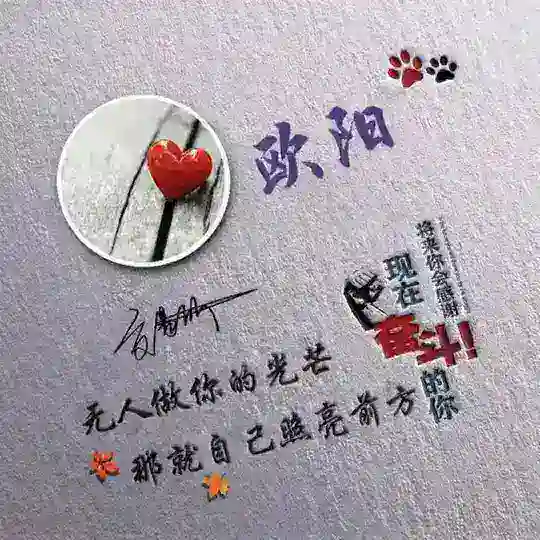 欧阳
将来你会感谢
现在
奋斗!
的你
无人做你的光芒
那就自己照亮前方